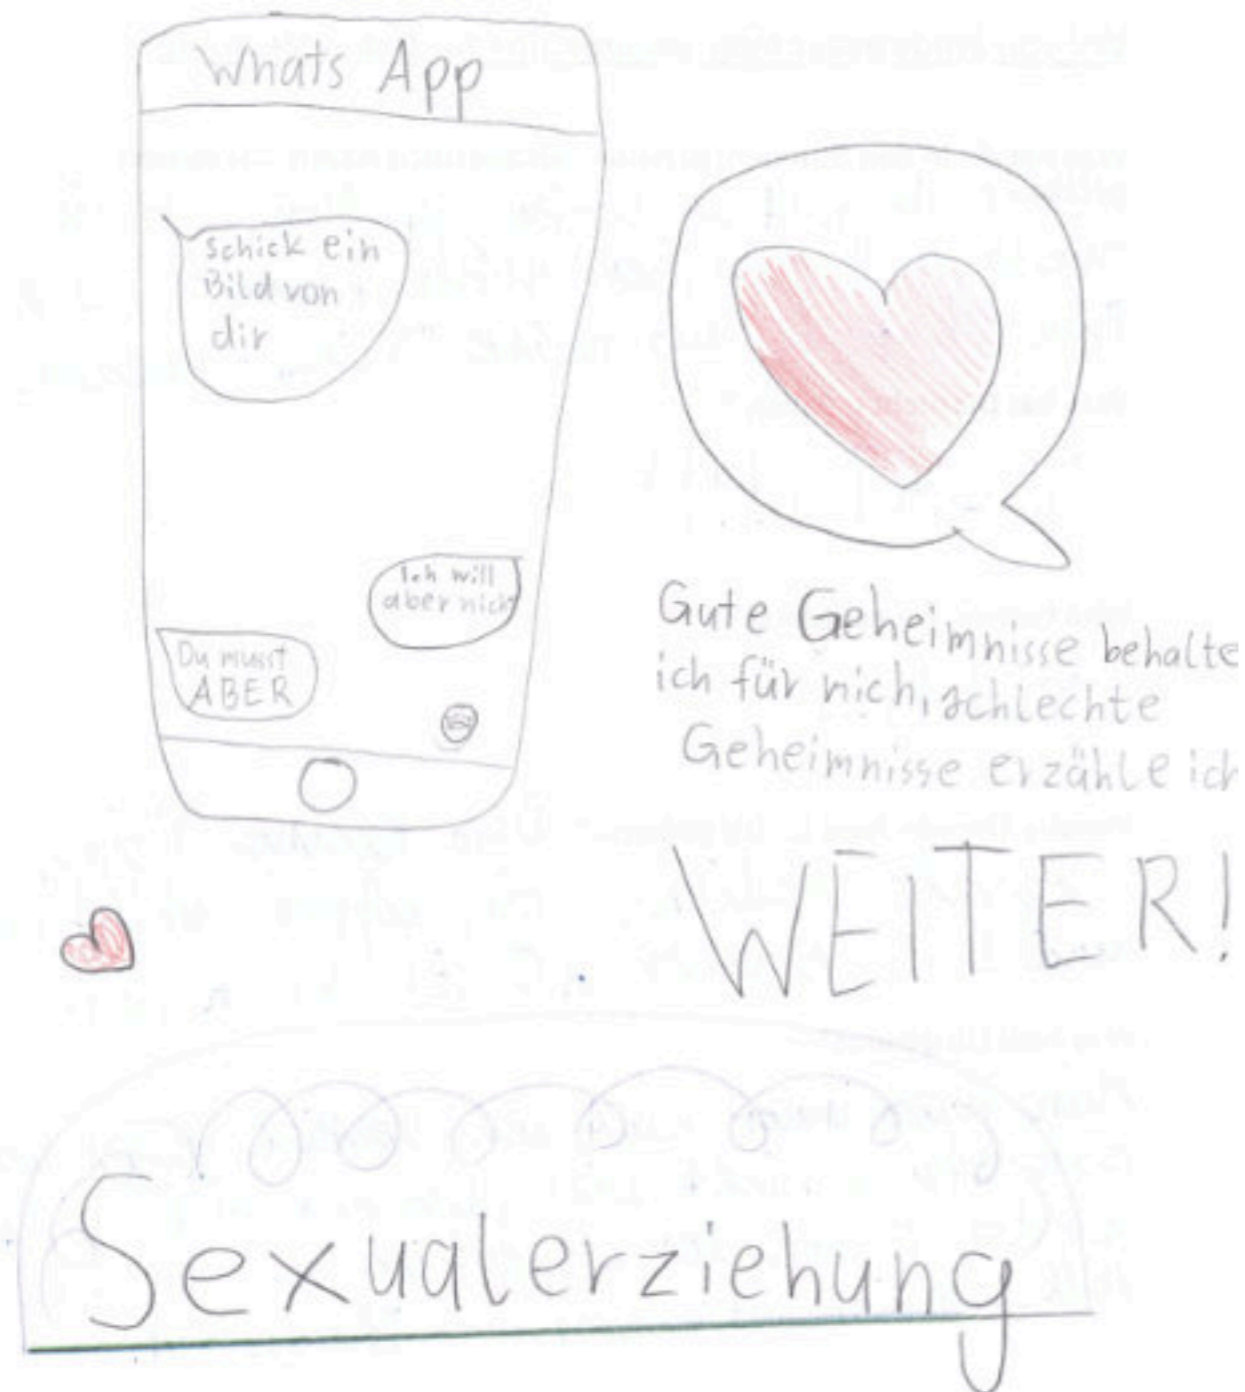 Whats App
schick ein
Bild von
dir
Ich will
aber nicht
Du musst
ABER
Gute Geheimnisse behalte
ich für mich, schlechte
Geheimnisse erzähle ich
WEITER!
Sexualerziehung